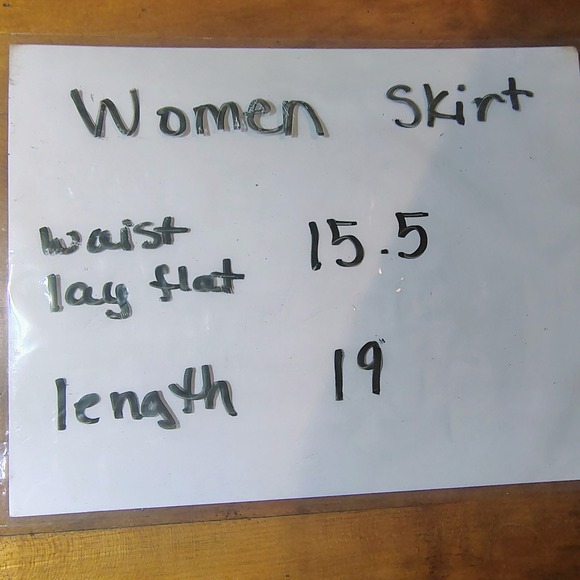 Women Skirt
waist 15.5
lay flat
length 19